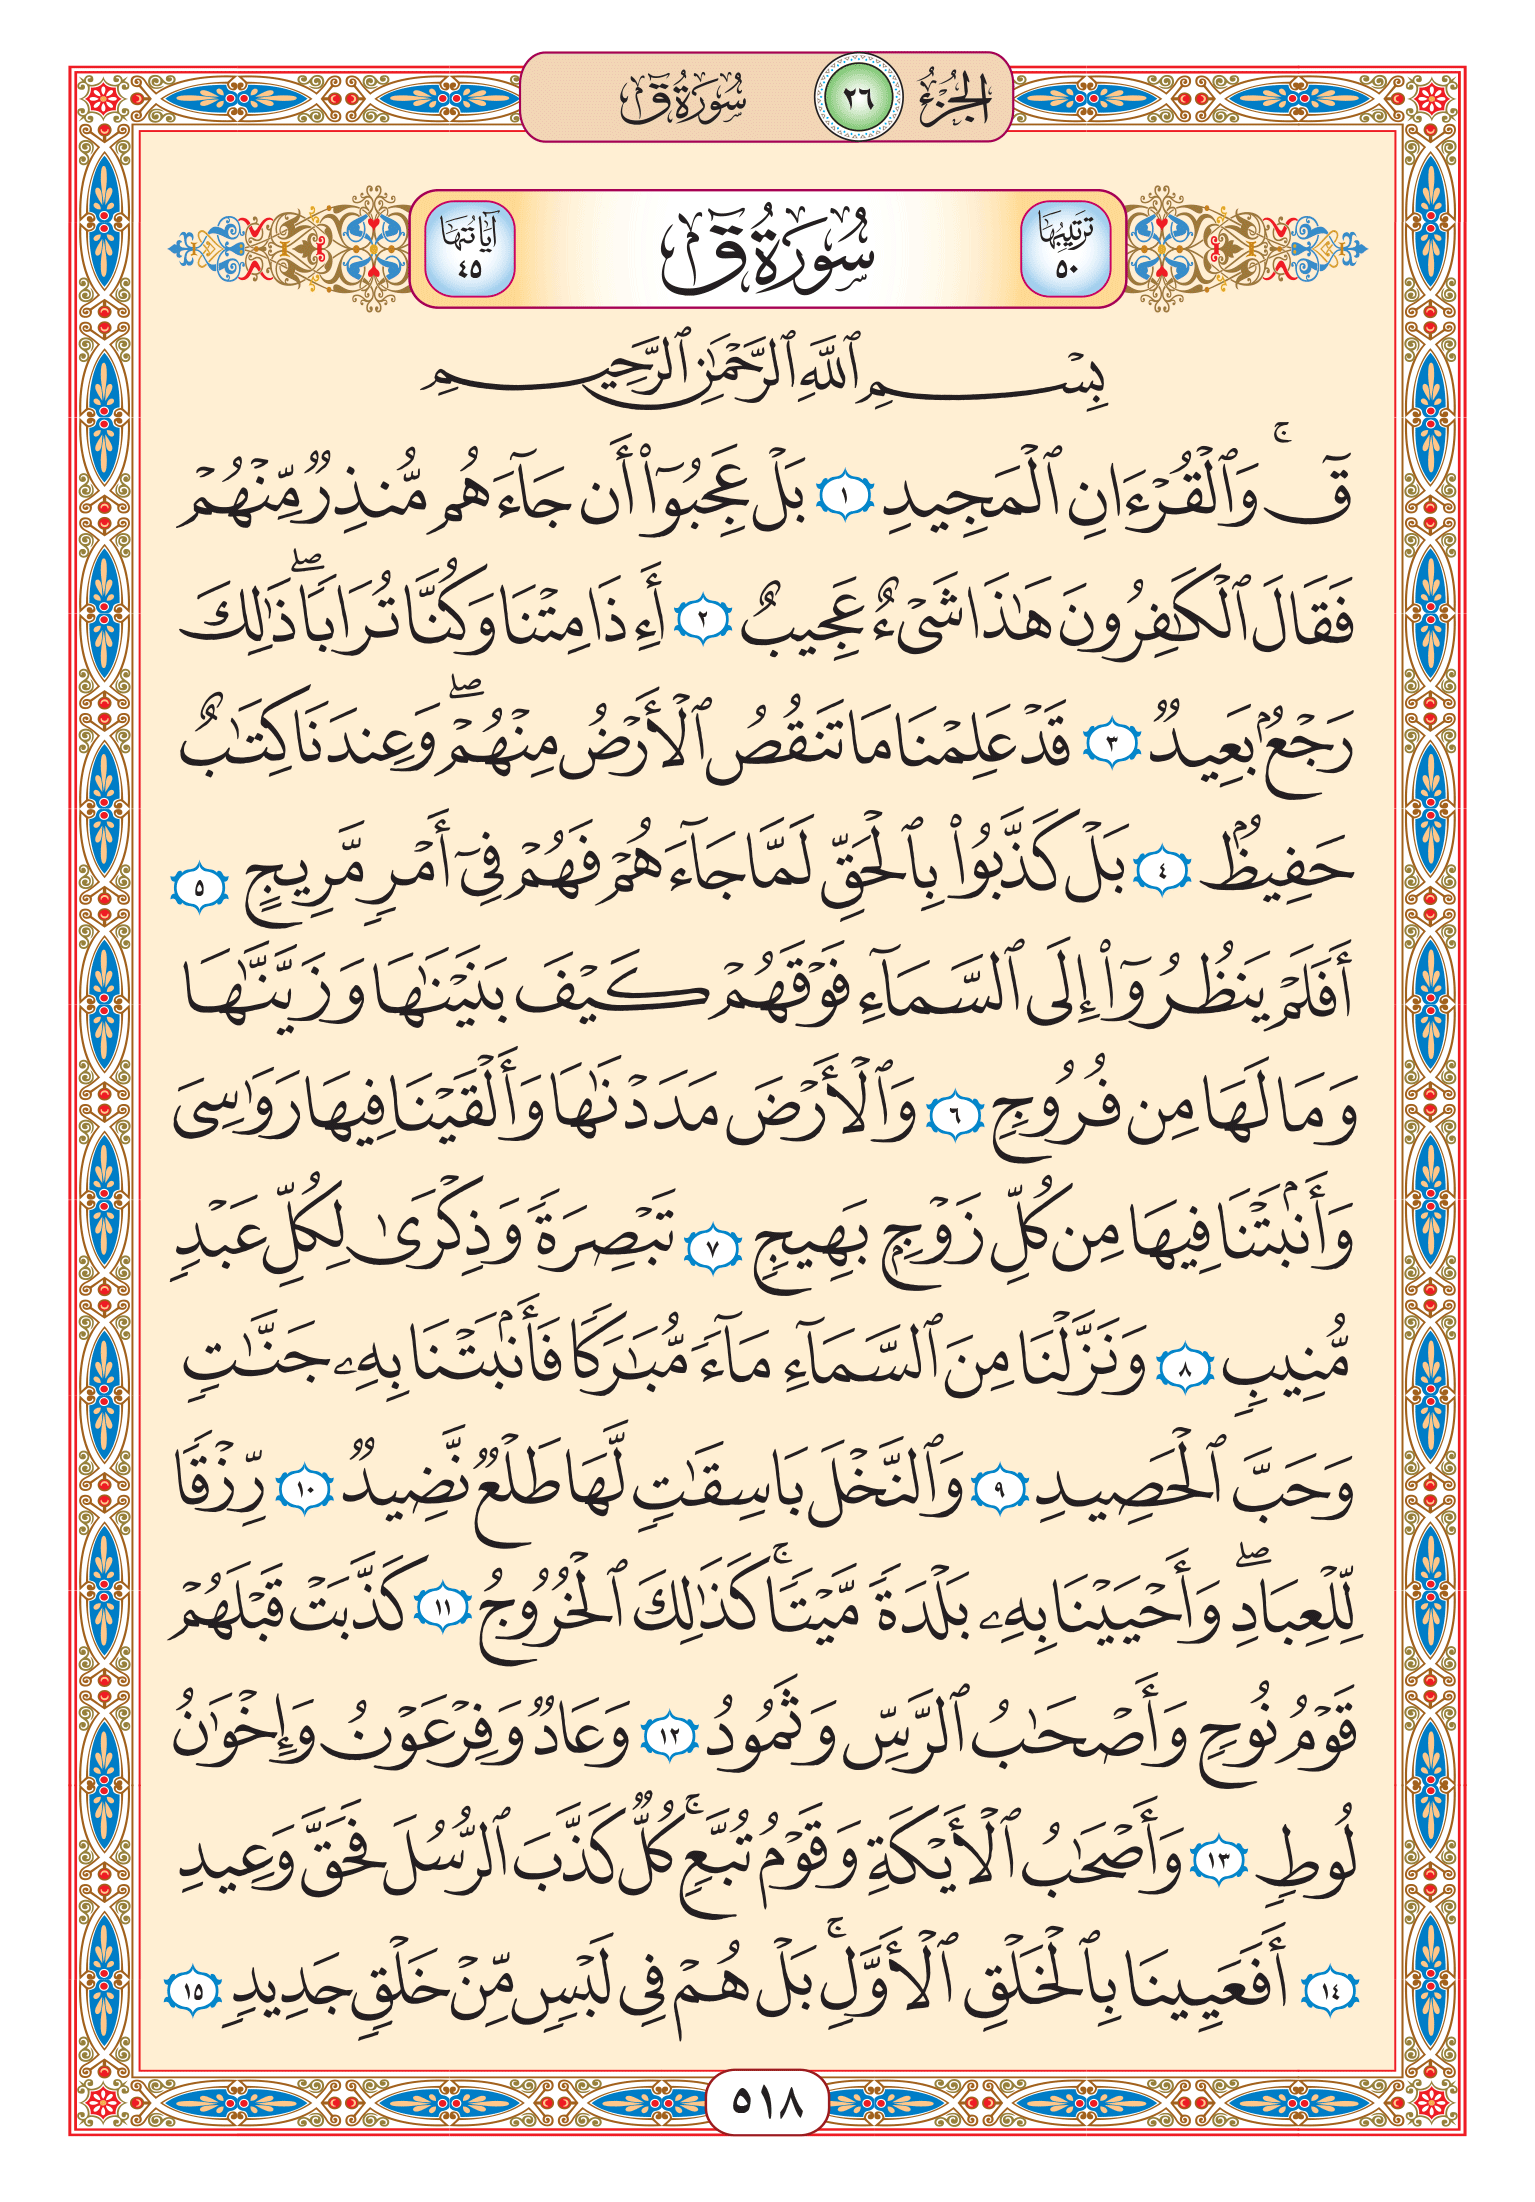 الجزء ٢٦ سورة ق
ترتيبها ٥٠ سورة ق آياتها ٤٥
بِسْمِ ٱللَّهِ ٱلرَّحْمَٰنِ ٱلرَّحِيمِ
قٓ ۚ وَٱلْقُرْءَانِ ٱلْمَجِيدِ ١ بَلْ عَجِبُوٓا۟ أَن جَآءَهُم مُّنذِرٌ مِّنْهُمْ
فَقَالَ ٱلْكَٰفِرُونَ هَٰذَا شَىْءٌ عَجِيبٌ ٢ أَءِذَا مِتْنَا وَكُنَّا تُرَابًا ۖ ذَٰلِكَ
رَجْعٌۢ بَعِيدٌ ٣ قَدْ عَلِمْنَا مَا تَنقُصُ ٱلْأَرْضُ مِنْهُمْ ۖ وَعِندَنَا كِتَٰبٌ
حَفِيظٌۢ ٤ بَلْ كَذَّبُوا۟ بِٱلْحَقِّ لَمَّا جَآءَهُمْ فَهُمْ فِىٓ أَمْرٍ مَّرِيجٍ ٥
أَفَلَمْ يَنظُرُوٓا۟ إِلَى ٱلسَّمَآءِ فَوْقَهُمْ كَيْفَ بَنَيْنَٰهَا وَزَيَّنَّٰهَا
وَمَا لَهَا مِن فُرُوجٍ ٦ وَٱلْأَرْضَ مَدَدْنَٰهَا وَأَلْقَيْنَا فِيهَا رَوَٰسِىَ
وَأَنۢبَتْنَا فِيهَا مِن كُلِّ زَوْجٍۭ بَهِيجٍ ٧ تَبْصِرَةً وَذِكْرَىٰ لِكُلِّ عَبْدٍ
مُّنِيبٍ ٨ وَنَزَّلْنَا مِنَ ٱلسَّمَآءِ مَآءً مُّبَٰرَكًا فَأَنۢبَتْنَا بِهِۦ جَنَّٰتٍ
وَحَبَّ ٱلْحَصِيدِ ٩ وَٱلنَّخْلَ بَاسِقَٰتٍ لَّهَا طَلْعٌ نَّضِيدٌ ١٠ رِّزْقًا
لِّلْعِبَادِ ۖ وَأَحْيَيْنَا بِهِۦ بَلْدَةً مَّيْتًا ۚ كَذَٰلِكَ ٱلْخُرُوجُ ١١ كَذَّبَتْ قَبْلَهُمْ
قَوْمُ نُوحٍ وَأَصْحَٰبُ ٱلرَّسِّ وَثَمُودُ ١٢ وَعَادٌ وَفِرْعَوْنُ وَإِخْوَٰنُ
لُوطٍ ١٣ وَأَصْحَٰبُ ٱلْأَيْكَةِ وَقَوْمُ تُبَّعٍ ۚ كُلٌّ كَذَّبَ ٱلرُّسُلَ فَحَقَّ وَعِيدِ
١٤ أَفَعَيِينَا بِٱلْخَلْقِ ٱلْأَوَّلِ ۚ بَلْ هُمْ فِى لَبْسٍ مِّنْ خَلْقٍ جَدِيدٍ ١٥
٥١٨